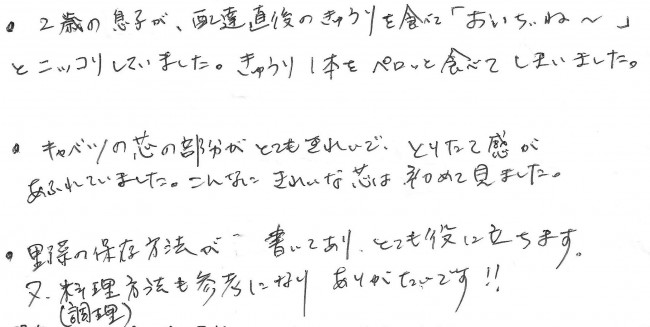 • 2歳の息子が、配達直後のきゅうりを食べて「おいちぃね〜」
とニッコリしていました。きゅうり1本をペロッと食べてしまいました。
• キャベツの芯の部分がとてもきれいで、とりたて感が
あふれていました。こんなにきれいな芯は初めて見ました。
• 野菜の保存方法が書いてあり、とても役に立ちます。
又、料理方法も参考になりありがたいです!!
(調理)